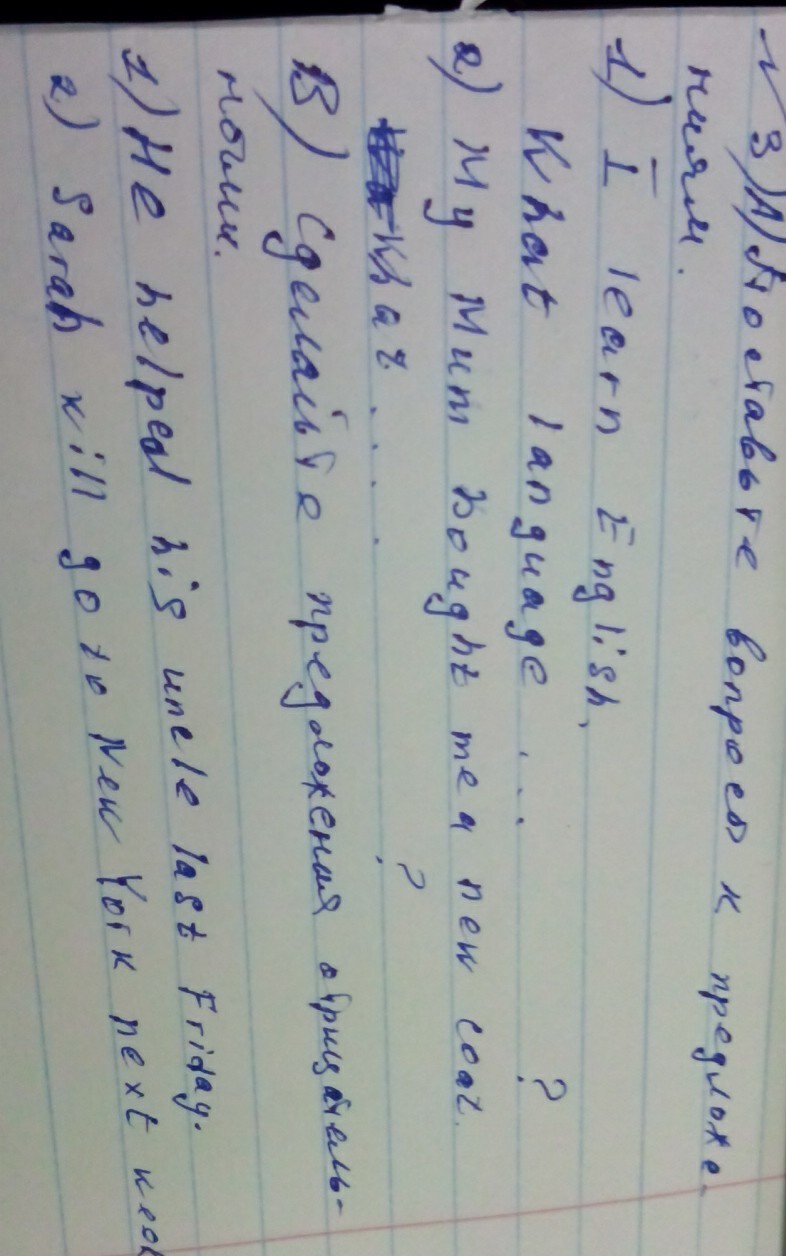 № 3) А) Поставьте вопросы к предложе-
ниям.
1) I learn English.
What language ... ?
2) My Mum bought me a new coat.
What .... ?
B) Сделайте предложения отрицатель-
ными.
1) He helped his uncle last Friday.
2) Sarah will go to New York next week